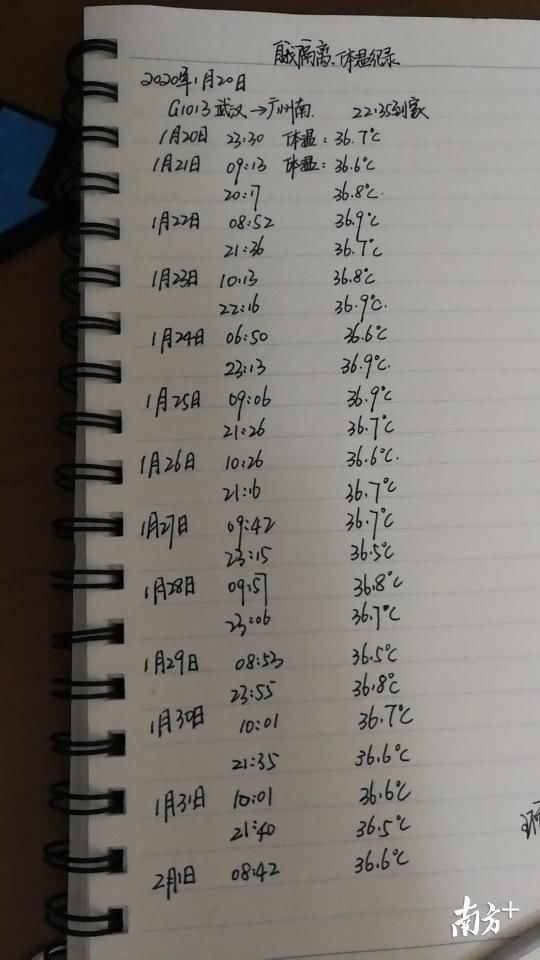 自我隔离.体温纪录
2020年1月20日
G1013 武汉→广州南. 22:35到家
1月20日 23:30 体温: 36.7℃
1月21日 09:13 体温: 36.6℃
20:17 36.8℃.
1月22日 08:52 36.9℃
21:36 36.7℃
1月23日 10:13 36.8℃
22:16 36.9℃.
1月24日 06:50 36.6℃
23:13 36.9℃.
1月25日 09:06 36.9℃
21:26 36.7℃
1月26日 10:26 36.6℃.
21:16 36.7℃
1月27日 09:42 36.7℃
23:15 36.5℃
1月28日 09:57 36.8℃
23:06 36.7℃
1月29日 08:53 36.5℃
23:55 36.8℃
1月30日 10:01 36.7℃
21:35 36.6℃
1月31日 10:01 36.6℃
21:40 36.5℃
2月1日 08:42 36.6℃
南方+